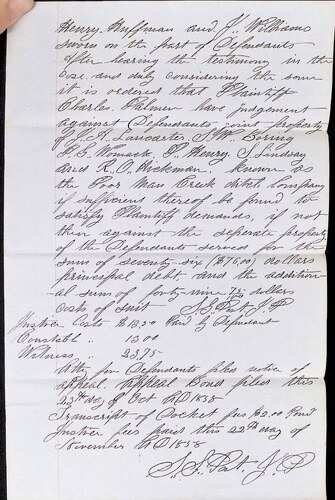 Henry Huffman and J. Williams
sworn on the part of Defendants
After hearing the testimony in the
Case and duly considering the same
it is ordered that Plaintiff
Charles Palmer have judgement
against Defendants joint property
J. A. Lancaster, S. W. Boring
P. E. Womack, P. Henry, S. Lindsay
and R. O. Hickman, known as
the Poor Man Creek ditch Company
if sufficient thereof be found to
satisfy Plaintiff demands, if not
then against the seperate property
of the Defendants served for the
sum of seventy six ($76,00) dollars
principal debt and the addition
al sum of forty nine 75 dollars
Costs of suit S. S. J. P
Justice Costs $13.50 Paid by Defendant
Constable " 13.00
Witness " 23.75
Atty for Defendants files notice of
appeal. Appeal Bond filed this
23th day of Oct AD 1858
Transcript of Docket fees $2.00 Pond
Justice fees paid this 22th day of
November AD 1858
S. S. J. P